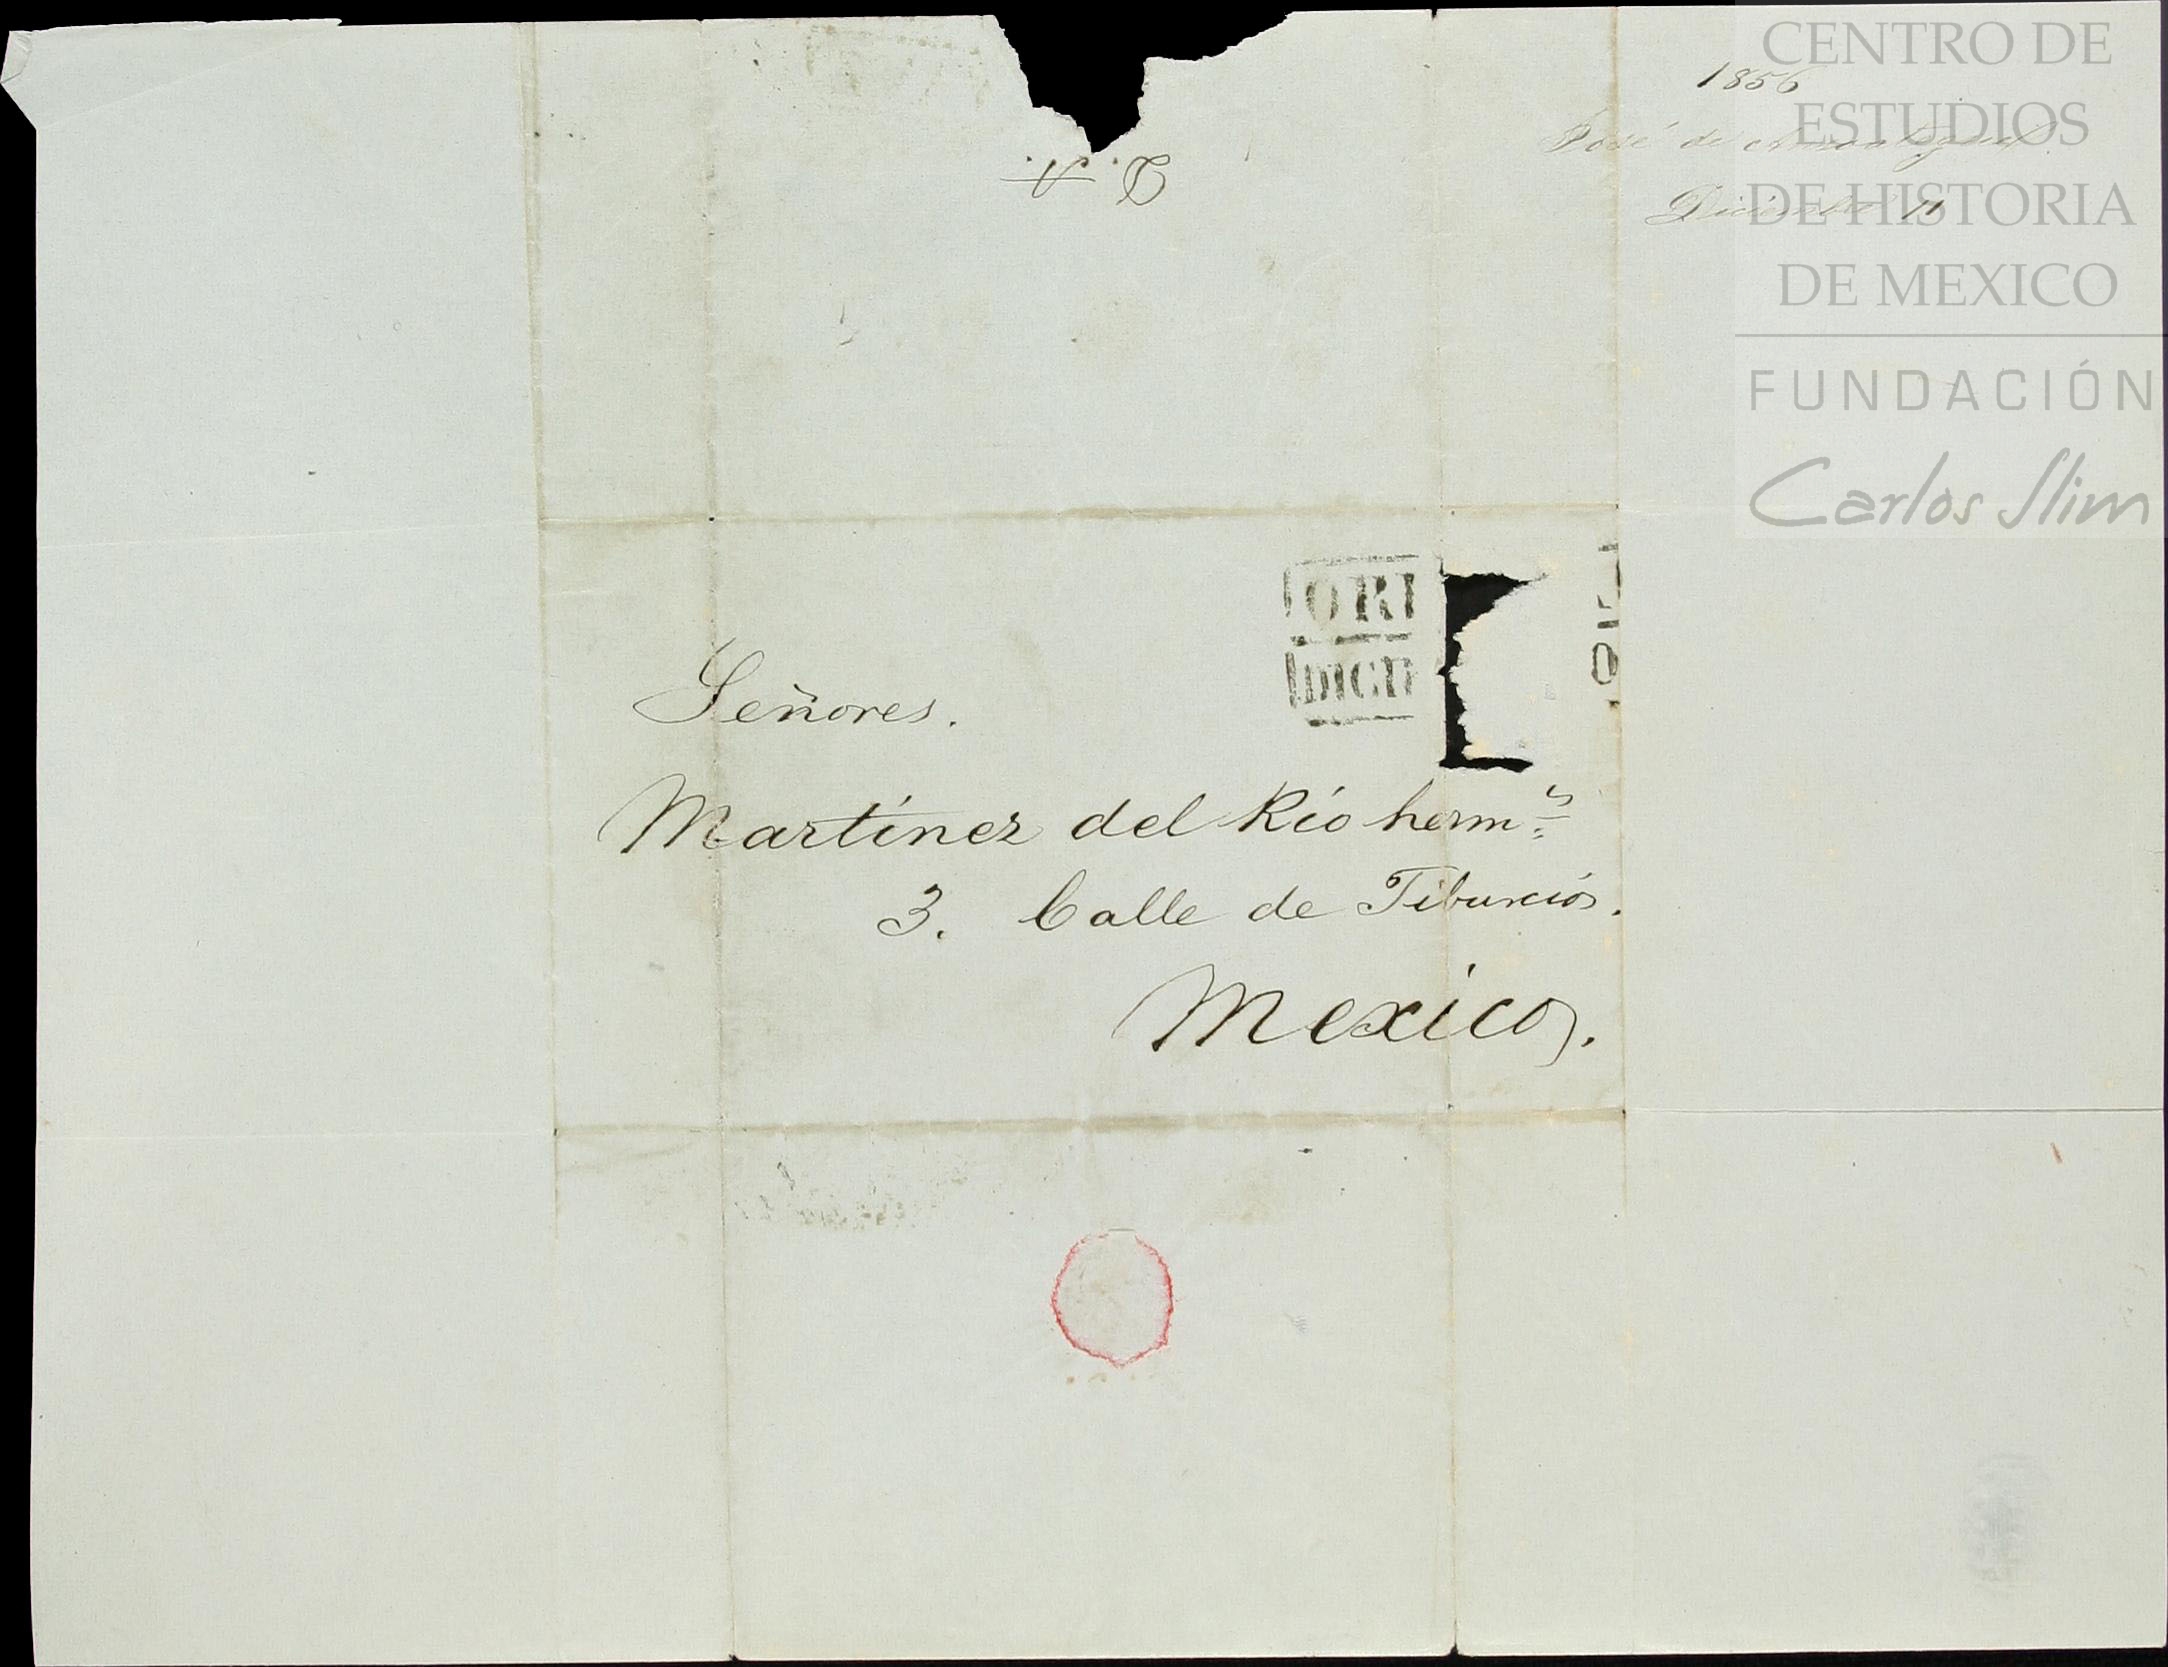 1856
José de
Diciembre 11
ORI
DICI
Señores.
Martinez del Rio herm.s
3. Calle de Tiburcios.
Mexico.
CENTRO DE
ESTUDIOS
DE HISTORIA
DE MEXICO
FUNDACIÓN
Carlos Slim